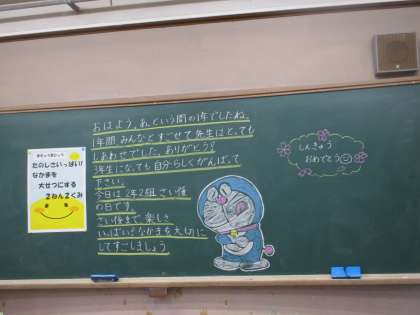 たのしさいっぱい!
なかまを
大せつにする
2ねん2くみ
おはよう。あっという間の1年でしたね。
1年間 みんなとすごせて先生はとっても
しあわせでした。ありがとう!
3年生になっても自分らしくがんばって
下さい。
今日は 2年2組 さい後
の日です。
さい後まで 楽しさ
いっぱい!なかまを大切に
してすごしましょう
しんきゅう
おめでとう